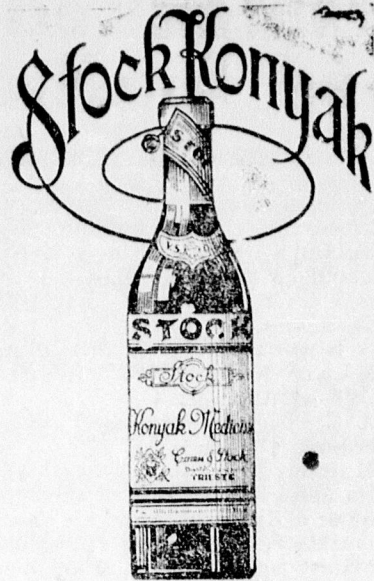 Stock Konyak
STO
STOCK
Stock
Konyak Medicin
Camis & Stock
TRIESTE